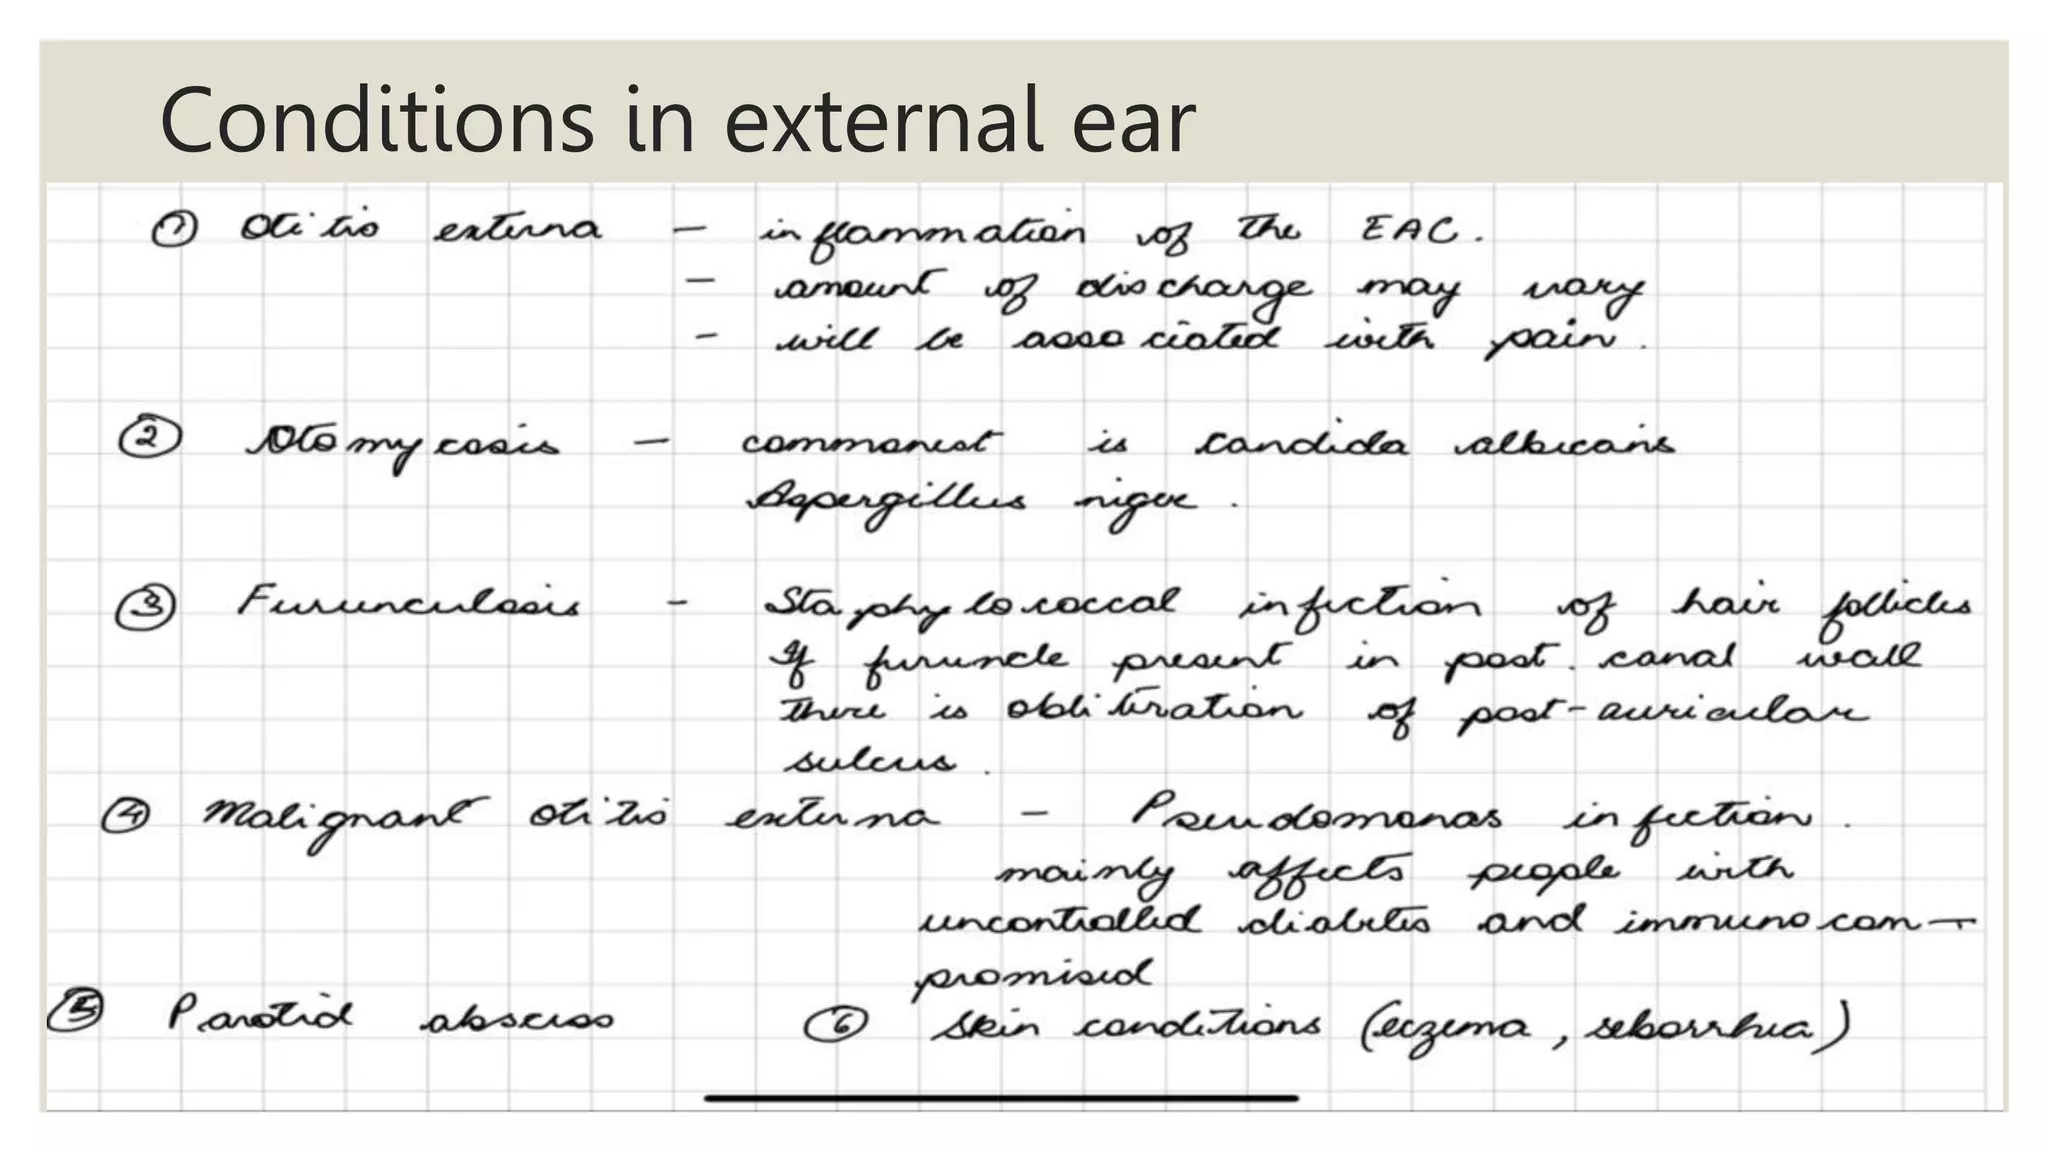 Conditions in external ear
① Otitis externa - inflammation of the EAC.
- amount of discharge may vary
- will be associated with pain.
② Otomycosis - commonest is candida albicans
Aspergillus niger.
③ Furunculosis - Staphylococcal infection of hair follicles
If furuncle present in post. canal wall
there is obliteration of post-auricular
sulcus.
④ Malignant otitis externa - Pseudomonas infection.
mainly affects people with
uncontrolled diabetes and immunocom-
promised
⑤ Parotid abscess ⑥ Skin conditions (eczema, seborrhea)